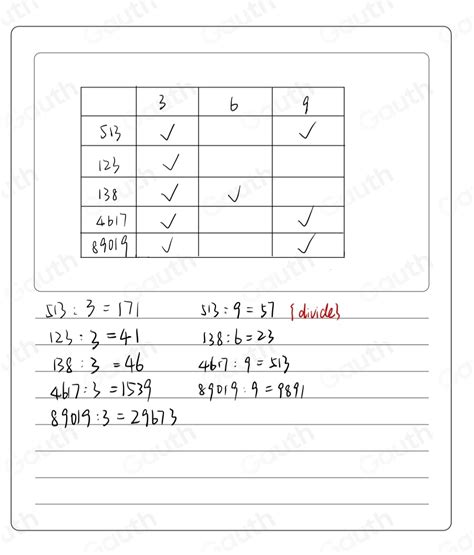 3 6 9
513 ✓ ✓
123 ✓
138 ✓ ✓
4617 ✓ ✓
89019 ✓ ✓
513 : 3 = 171 513 : 9 = 57 {divide}
123 : 3 = 41 138 : 6 = 23
138 : 3 = 46 4617 : 9 = 513
4617 : 3 = 1539 89019 : 9 = 9891
89019 : 3 = 29673